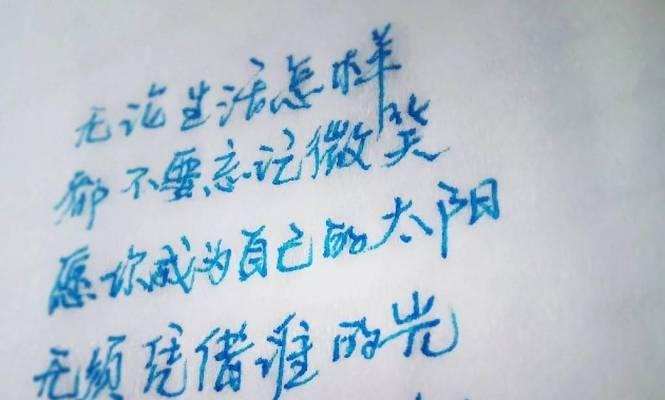 无论生活怎样
都不要忘记微笑
愿你成为自己的太阳
无须凭借谁的光